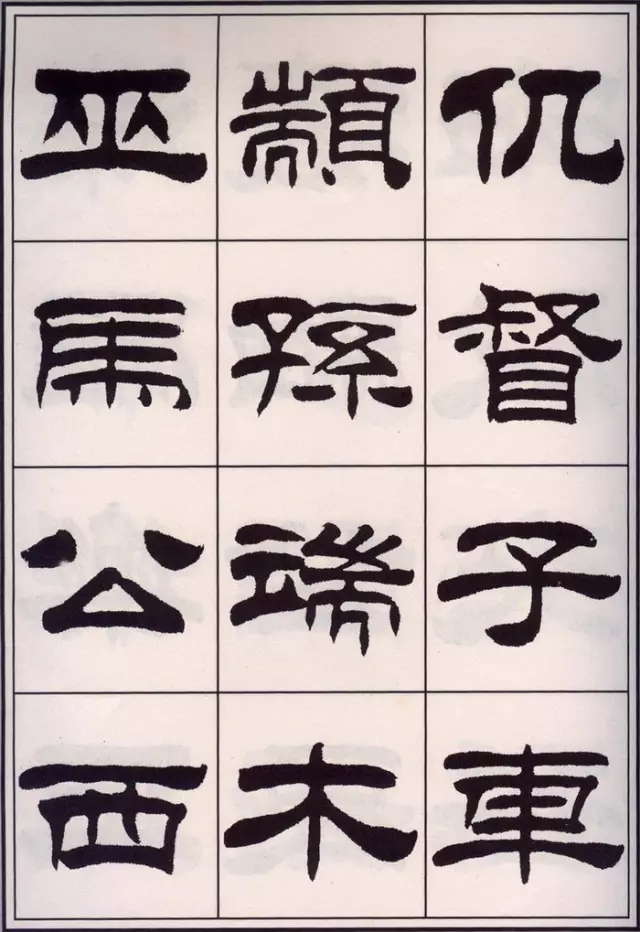 仉督子車
顓孫端木
巫馬公西